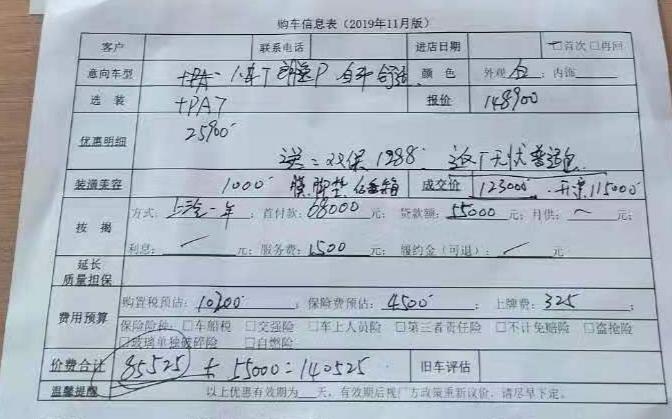 购车信息表（2019年11月版）
客户 联系电话 进店日期 □首次□再回
意向车型 1.4T 朗逸P 自动舒适 颜色 外观：白 ；内饰
选装 +PA7 报价 148900
优惠明细 25900
送二次保1288.
装潢美容 1000 膜.脚垫. 成交价 123000 开票115000
按揭 方式：上汽一年 ；首付款：68000 元；贷款额：55000 元；月供： 元；
利息： 元；服务费：1500 元；履约金（可退）： 元；
延长质量担保
费用预算 购置税预估：10200 ；保险费预估：4500 ；上牌费：325
保险险种：□车船税 □交强险 □车上人员险 □第三者责任险 □不计免赔险 □盗抢险
□玻璃单独破碎险 □自燃险
价费合计 85525 + 55000=140525 旧车评估
温馨提醒 以上优惠有效期为 天，有效期后视厂方政策重新议价，请尽早下定。